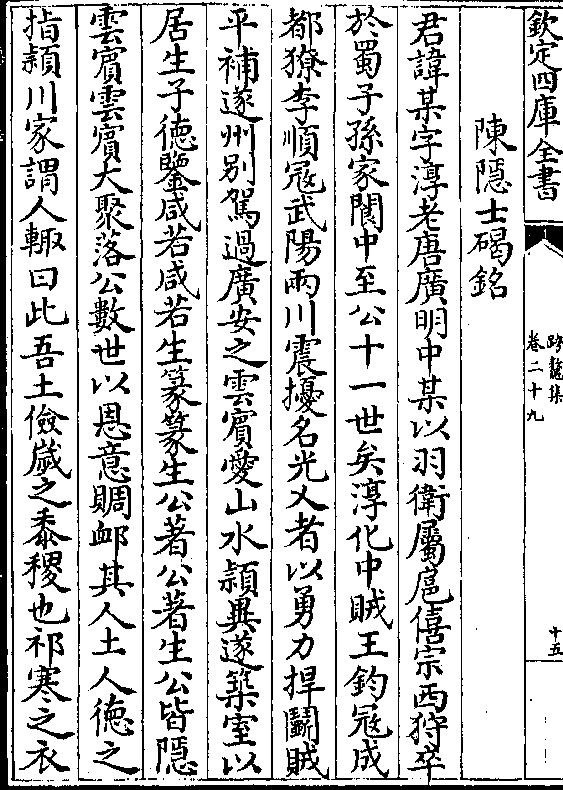 欽定四庫全書
跨鼇集
卷二十九
十五
陳隱士碣銘
君諱某字淳老唐廣明中某以羽衛屬扈僖宗西狩卒
於蜀子孫家閬中至公十一世矣淳化中賊王鈞寇成
都獠李順寇武陽兩川震擾名光乂者以勇力捍鬬賊
平補遂州別駕過廣安之雲賔愛山水穎異遂築室以
居生子德鑒咸若咸若生篆篆生公著公著生公皆隱
雲賔雲賔大聚落公數世以恩意賙卹其人土人德之
指穎川家謂人輙曰此吾土儉歲之黍稷也祁寒之衣